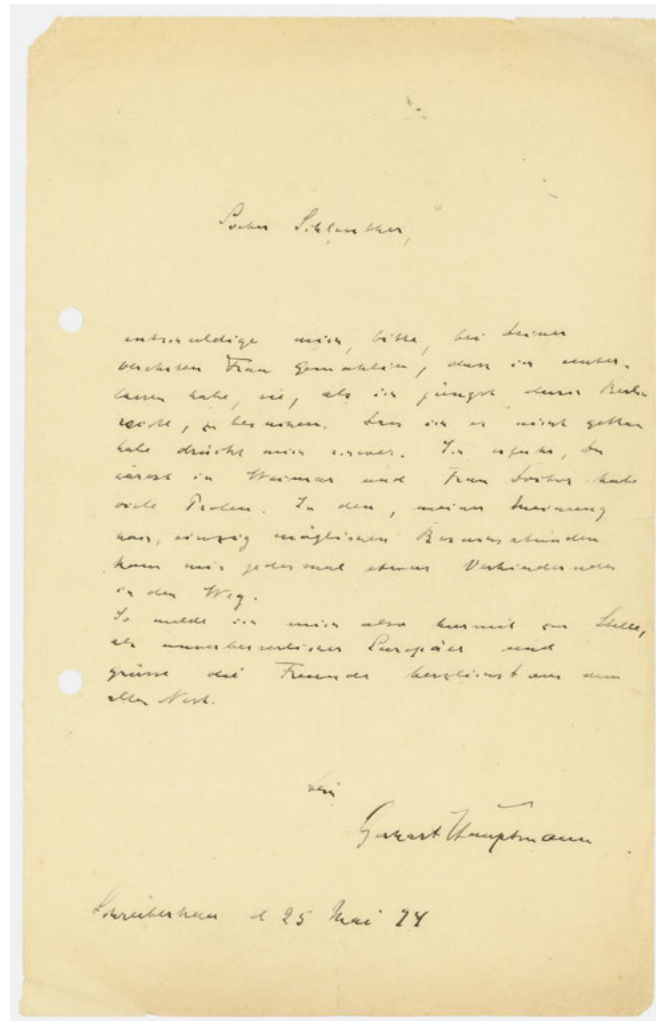 Lieber Schlenther,
entschuldige mich, bitte, bei Deiner
verehrten Frau Gemahlin, dass ich unter-
lassen habe, sie, als ich jüngst durch Berlin
reiste, zu besuchen. Dass ich es nicht gethan
habe drückt mich schwer. Ich erfuhr, Du
wärest in Weimar und Frau Doctor habe
viele Proben. In den, meiner Meinung
nach, einzig möglichen Besuchsstunden
kam mir jedesmal etwas Verhinderndes
in den Weg.
So melde ich mich also hiermit zur Stelle,
als unverbesserlicher Europäer und
grüsse die Freunde herzlichst aus dem
alten Nest.
Dein
Gerhart Hauptmann
Schreiberhau d 25 Mai 94